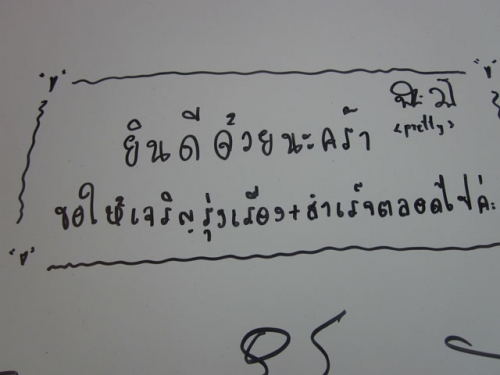 ยินดีด้วยนะคร้า
<pretty>
ขอให้เจริญรุ่งเรือง+สำเร็จตลอดไปค่ะ